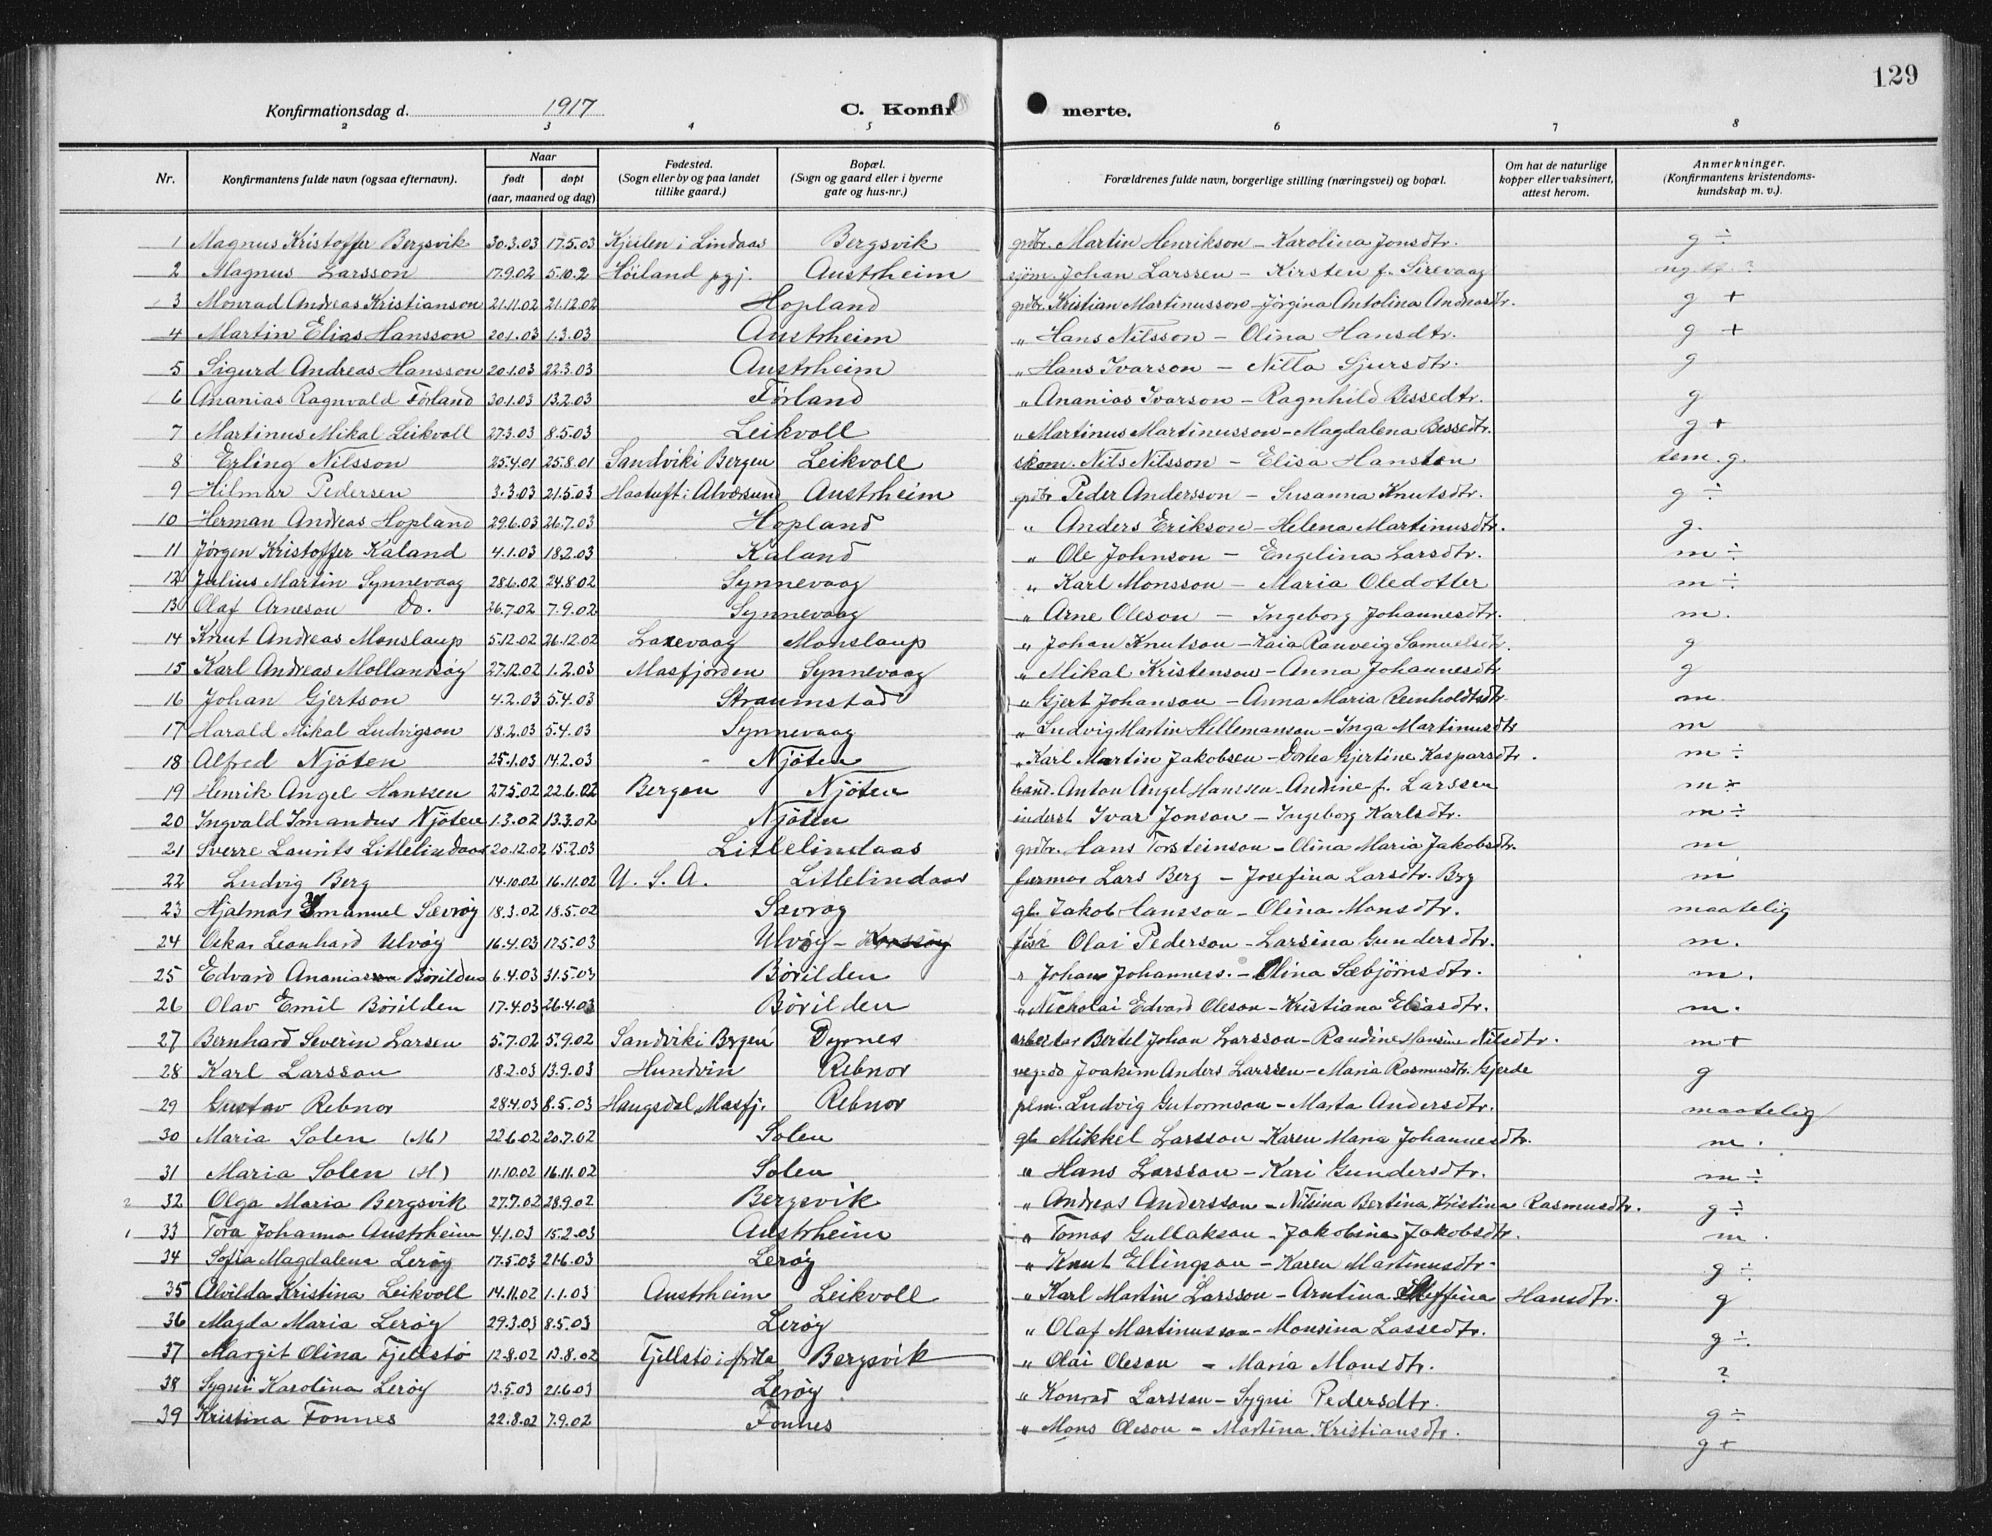 129
Konfirmationsdag d. 1917 C. Konfir merte.
2 3 4 5 6 7 8
Nr. Konfirmantens fulde navn (ogsaa efternavn). Naar født døpt (aar, maaned og dag) Fødested. (Sogn eller by og paa landet tillike gaard.) Bopæl. (Sogn og gaard eller i byerne gate og hus-nr.) Forældrenes fulde navn, borgerlige stilling (næringsvei) og bopæl. Om hat de naturlige kopper eller vaksinert, attest herom. Anmerkninger. (Konfirmantens kristendoms-kundskap m. v.).
1 Magnus Kristoffer Bergsvik 30.3.03 17.5.03 Kjeilen i Lindaas Bergsvik grdbr. Martin Henrikson – Karolina Jonsdtr. g ÷
2 Magnus Larsson 17.9.02 5.10.2 Höiland pgj. Austrheim sjöm. Johan Larssen – Kirsten f. Sirevaag
3 Monrad Andreas Kristianson 21.11.02 21.12.02 Hopland grdbr. Kristian Martinusson – Jörgina Antolina Andreasdtr. g +
4 Martin Elias Hansson 20.1.03 1.3.03 Austrheim " Hans Nilsson – Olina Hansdtr. g +
5 Sigurd Andreas Hansson 20.1.03 22.3.03 Austrheim " Hans Ivarson – Nilla Sjursdtr. g
6 Ananias Ragnvald Förland 30.1.03 13.2.03 Förland " Ananias Ivarson – Ragnhild Bessedtr. g
7 Martinus Mikal Leikvoll 27.3.03 8.5.03 Leikvoll " Martinus Martinusson – Magdalena Bessedtr. g +
8 Erling Nilsson 25.4.01 25.8.01 Sandviki Bergen Leikvoll skom. Nils Nilsson – Elisa Hansten tem. g.
9 Hilmar Pedersen 3.3.03 21.5.03 Haatuft i Alversund Austrheim grdbr Peder Andersson – Susanna Knutsdtr. g ÷
10 Herman Andreas Hopland 29.6.03 26.7.03 Hopland " Anders Erikson – Helena Martinusdtr. g.
11 Jørgen Kristoffer Kaland 4.1.03 18.2.03 Kaland " Ole Johnson – Engelina Larsdtr. m ÷
12 Julius Martin Synnevaag 28.6.02 24.8.02 Synnevaag " Karl Monsson – Maria Oledotter m ÷
13 Olaf Arneson Do. 26.7.02 7.9.02 Synnevaag " Arne Oleson – Ingeborg Johannesdtr. m.
14 Knut Andreas Monslaup 5.12.02 26.12.02 Laxevaag Monslaup " Johan Knutson – Kaia Ranveig Samuelsdtr. g
15 Karl Andreas Mollandsöy 27.12.02 1.2.03 Masfjorden Synnevaag " Mikal Kristenson – Anna Johannesdtr g
16 Johan Gjertson 4.2.03 5.4.03 Straumstad " Gjert Johanson – Anna Maria Reinholdtsdtr. m.
17 Harald Mikal Ludvigson 18.2.03 5.4.03 Synnevaag " Ludvig Martin Hellemanson – Inga Martinusdtr m
18 Alfred Njöten 25.1.03 14.2.03 Njöten " Karl Martin Jakobsen – Dortea Gjertine Kasparsdtr. m ÷
19 Henrik Angel Hanssen 27.5.02 22.6.02 Bergen Njöten hand. Anton Angel Hanssen – Andrine f. Larssen m ÷
20 Ingvald Imandus Njöten 1.3.02 13.3.02 Njöten inderst Ivar Jonson – Ingeborg Karlsdtr. m ÷
21 Sverre Laurits Littlelindaas 20.12.02 15.2.03 Littlelindaas grdbr. Hans Torsteinson – Olina Maria Jakobsdtr. m
22 Ludvig Berg 14.10.02 16.11.02 U. S. A. Littlelindaas farmar Lars Berg – Josefina Larsdtr. Berg m
23 Hjalmar Imanuel Sævröy 18.3.02 18.5.02 Sævröy gb. Jakob Hansson – Olina Monsdtr. maatelig
24 Oskar Leonhard Ulvöy 16.4.03 17.5.03 Ulvöy – Kårssöy fisk. Olai Pederson – Larsina Gundersdtr. m.
25 Edvard Ananiasson Börilden 6.4.03 31.5.03 Börilden " Johan Johanness. – Olina Sæbjörnsdtr. m.
26 Olav Emil Börilden 17.4.03 26.4.03 Börilden " Nickolai Edvard Oleson – Kristiana Eliasdtr. m.
27 Bernhard Severin Larsen 5.7.02 5.9.02 Sandviki Bergen Dyrnes arbeidar Bertel Johan Larsson – Randine Hansine Nilsdtr. m +
28 Karl Larsson 18.2.03 13.9.03 Hundvin Rebnor Joakim Anders Larssen – Maria Rasmusdtr. Gjerde g
29 Gustav Rebnor 28.4.03 8.5.03 Haugsdal Masfj. Rebnor plm. Ludvig Gutormson – Marta Andersdtr. maatelig
30 Maria Solen (M) 22.6.02 20.7.02 Solen gb. Mikkel Larsson – Karen Maria Johannesdtr. m.
31 Maria Solen (H) 11.10.02 16.11.02 Solen " Hans Larsson – Kari Gundersdtr. m ÷
2 32 Olga Maria Bergsvik 27.7.02 28.9.02 Bergsvik " Andreas Andersson – Nilsina Bertina Kristina Rasmusdtr. g ÷
1 33 Tora Johanna Austrheim 4.1.03 15.2.03 Austrheim " Tomas Gullakson – Jakobine Jakobsdtr. m.
34 Sofia Magdalena Leröy 17.5.03 21.6.03 Leröy " Knut Ellingson – Karen Martinusdtr. g ÷
35 Alvilda Kristina Leikvoll 14.11.02 1.1.03 Austrheim Leikvoll " Karl Martin Larsson – Arntina Steffina Hansdtr. g
36 Magda Maria Leröy 29.3.03 8.5.03 Leröy " Olaf Martinusson – Monsina Lassedtr. g ÷
37 Margit Olina Fjellstö 12.8.02 13.8.02 Fjellstö i Herdla Bergsvik " Olai Oleson – Maria Monsdtr. ?
38 Sygni Karolina Leröy 13.5.03 21.6.03 Leröy " Konrad Larsson – Sygni Pedersdtr. g ÷
39 Kristina Fonnes 22.8.02 7.9.02 Fonnes " Mons Oleson – Martina Kristiansdtr. g +